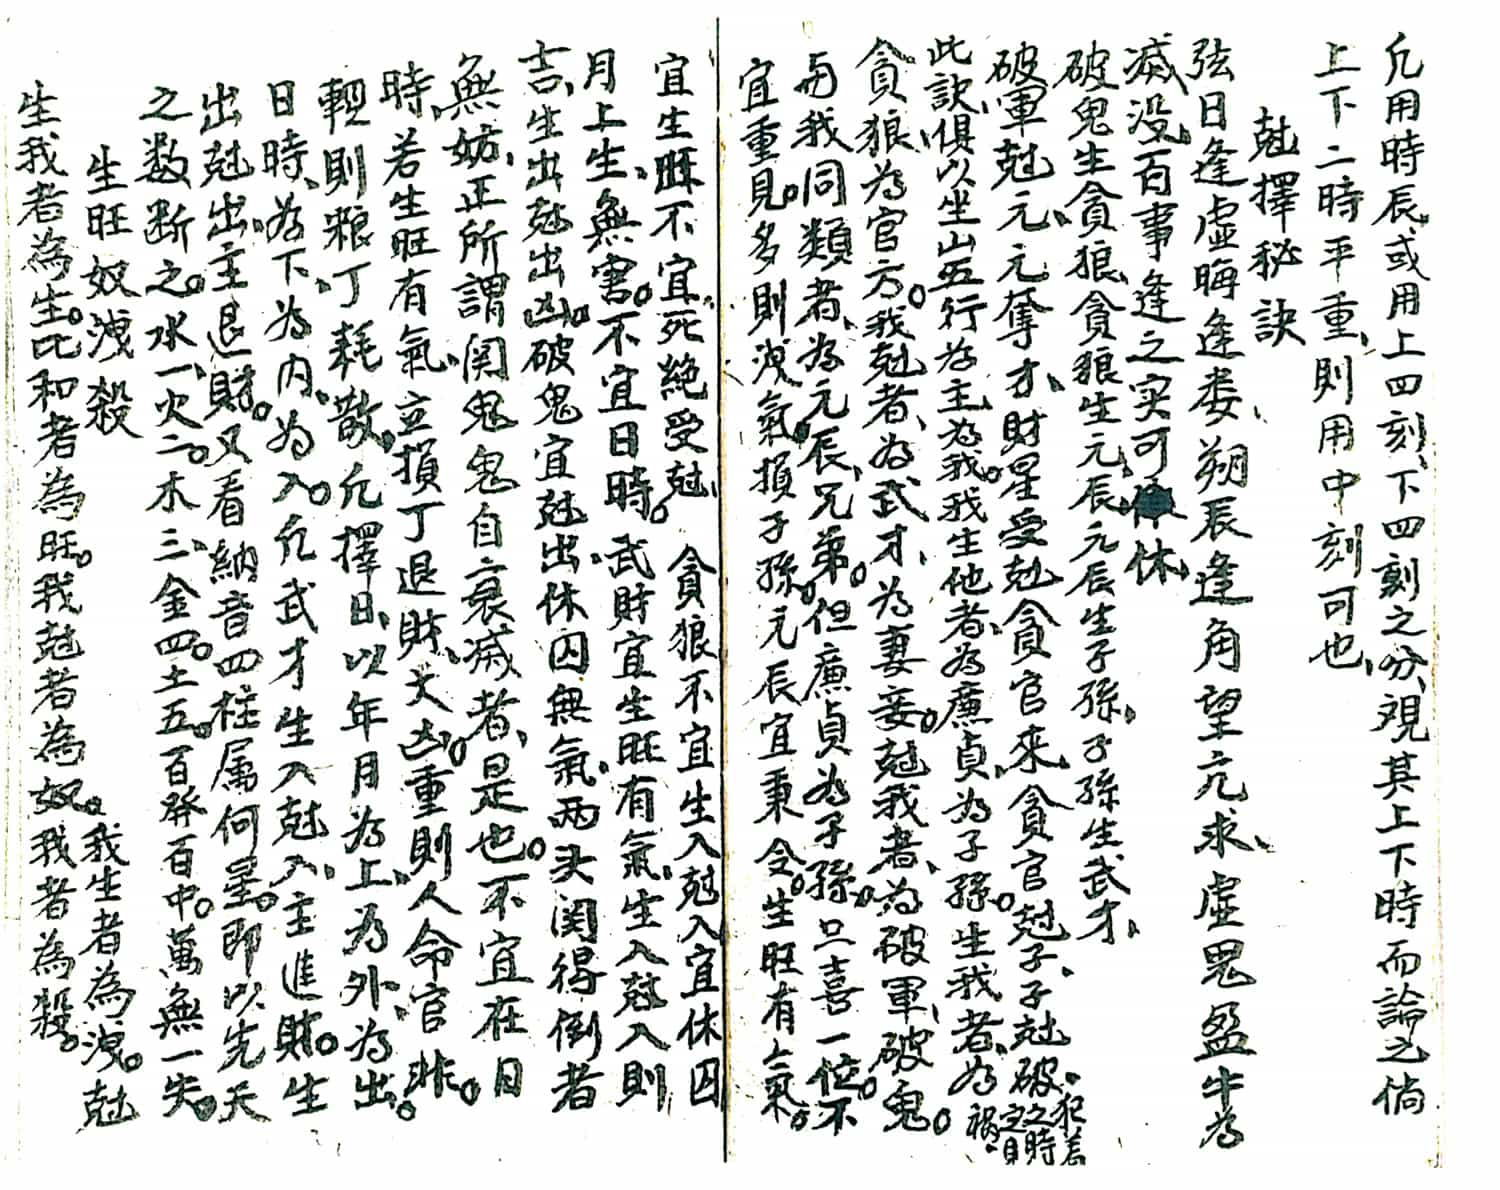 凢用時辰、或用上四刻、下四刻之分、覌其上下時而論之倘
上下二時平重、則用中刻可也、
尅擇秘訣
弦日逢虛晦逢娄、朔辰逢角望亢求、虛鬼盈牛為
滅没、百事逢之实可休、
破鬼生貪狼、貪狼生元辰、元辰生子孫、子孫生武才、
破軍尅元、元奪才、財星受尅貪官來、貪官尅子、子尅破、犯着之時之日禍、
此訣、俱以坐山五行為主、為我。我生他者、為廉貞、為子孫。生我者、為
貪狼、為官方。我尅者、為武才、為妻妾。尅我者、為破軍、破鬼。
与我同類者、為元辰、兄弟。但廉貞為子孫、只喜一位、不
宜重見。多則洩氣損子孫。元辰宜秉令。生旺有氣。
宜生旺不宜死絶受尅。 貪狼不宜生入尅入宜休囚
月上生、無害。不宜日時、武財宜生旺有氣、生入尅入則
吉、生出尅出凶。破鬼宜尅出、休囚無氣、两头関得倒者
無妨、正所謂関鬼鬼自衰滅者、是也。不宜在日
時、若生旺有氣、立損丁退財、大凶。重則人命官非。
輕則粮丁耗散、凢擇日、以年月為上、為外、為出。
日時、為下、為内、為入。凢武才生入尅入、主進財。生
出尅出、主退財。又看納音四柱属何星。即以先天
之数断之。水一、火二。木三、金四。土五。百發百中。萬無一失。
生旺奴洩殺 我生者為洩。尅
生我者為生。比和者為旺。我尅者為奴。我者為殺。